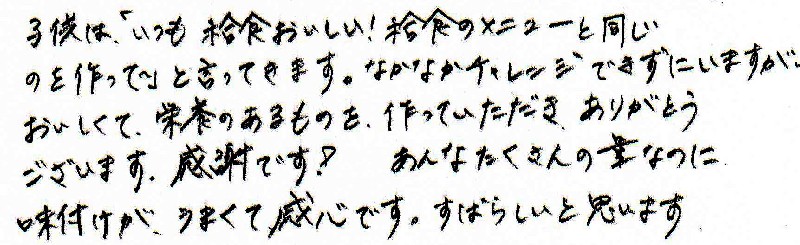 子供は、「いつも給食おいしい！給食のメニューと同じ
のを作って～」と言ってきます。なかなかチャレンジできずにいますが、
おいしくて、栄養のあるものを、作っていただき、ありがとう
ございます。感謝です！　あんなたくさんの量なのに
味付けが、うまくて感心です。すばらしいと思います